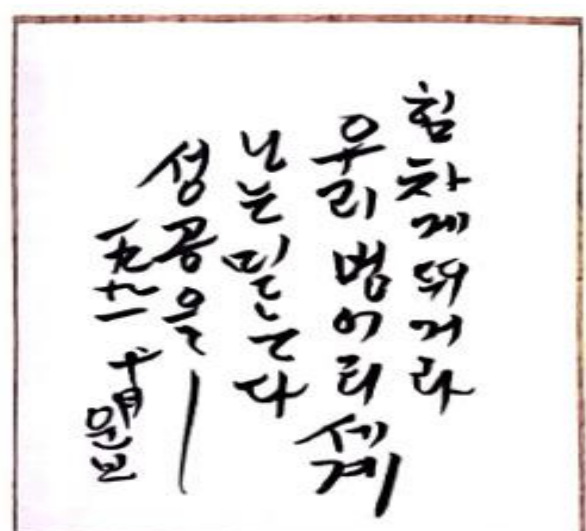 힘차게 뛰거라
우리 벙어리 세계
나는 믿는다
성공을
十月 운보